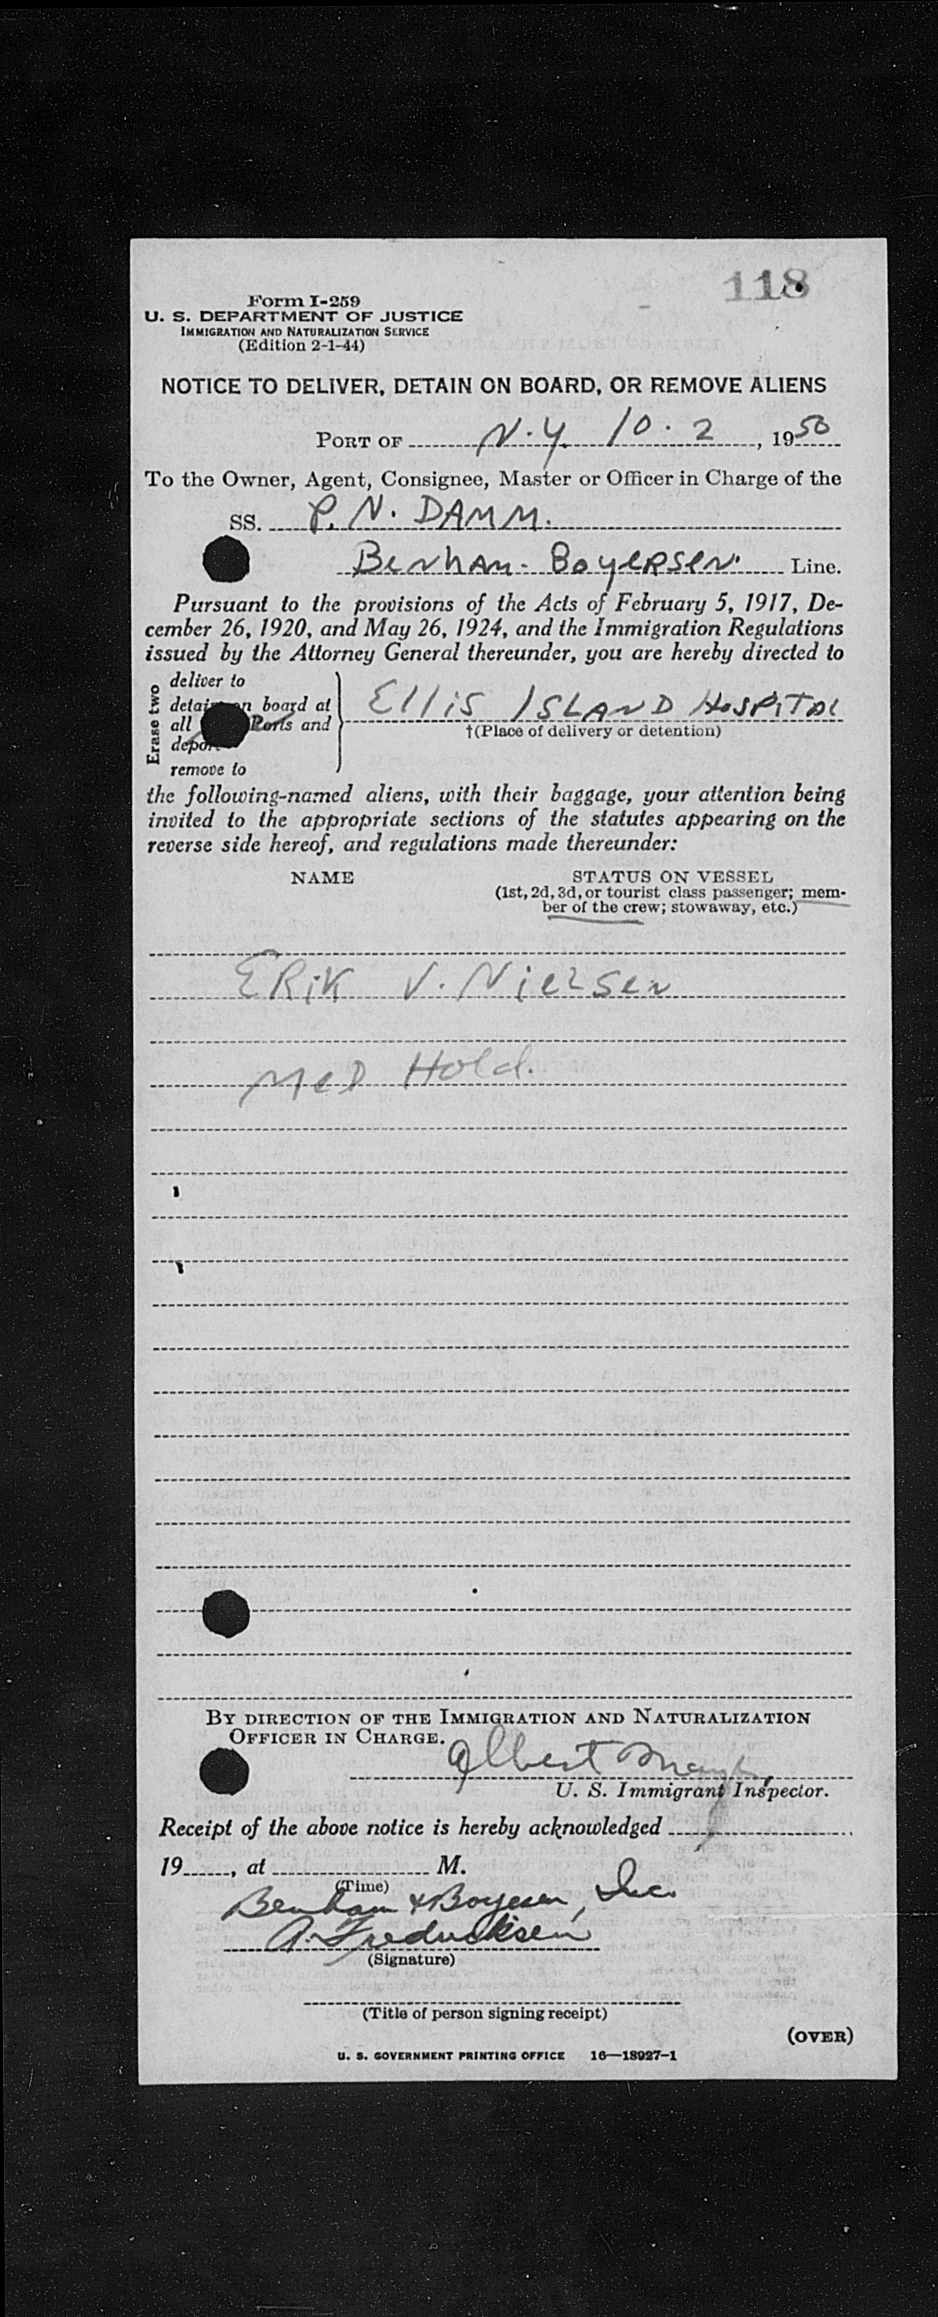 118
Form I-259
U. S. DEPARTMENT OF JUSTICE
IMMIGRATION AND NATURALIZATION SERVICE
(Edition 2-1-44)
NOTICE TO DELIVER, DETAIN ON BOARD, OR REMOVE ALIENS
PORT OF N.Y. 10.2, 1950
To the Owner, Agent, Consignee, Master or Officer in Charge of the
SS. P. N. DAMM.
Benham-Boyersen. Line.
Pursuant to the provisions of the Acts of February 5, 1917, De-
cember 26, 1920, and May 26, 1924, and the Immigration Regulations
issued by the Attorney General thereunder, you are hereby directed to
Erase two
deliver to
board at
all Ports and
remove to
Ellis Island Hospital
†(Place of delivery or detention)
the following-named aliens, with their baggage, your attention being
invited to the appropriate sections of the statutes appearing on the
reverse side hereof, and regulations made thereunder:
NAME
STATUS ON VESSEL
(1st, 2d, 3d, or tourist class passenger; mem-
ber of the crew; stowaway, etc.)
Erik V. Nielsen
Med Hold.
BY DIRECTION OF THE IMMIGRATION AND NATURALIZATION
OFFICER IN CHARGE.
Albert
U. S. Immigrant Inspector.
Receipt of the above notice is hereby acknowledged
19 , at M.
(Time)
Benham & Boyesen, Inc.
A. Fredricksen
(Signature)
(Title of person signing receipt)
(OVER)
U. S. GOVERNMENT PRINTING OFFICE 16—18927-1